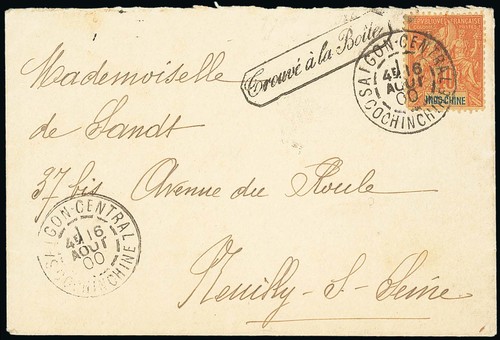 Trouvé à la Boite
RÉPUBLIQUE FRANÇAISE
INDO-CHINE
SAIGON-CENTRAL
16
AOUT
00
COCHINCHINE
Mademoiselle
de Sandt
37 bis Avenue du Roule
Neuilly-S-Seine
SAIGON-CENTRAL
16
AOUT
00
COCHINCHINE